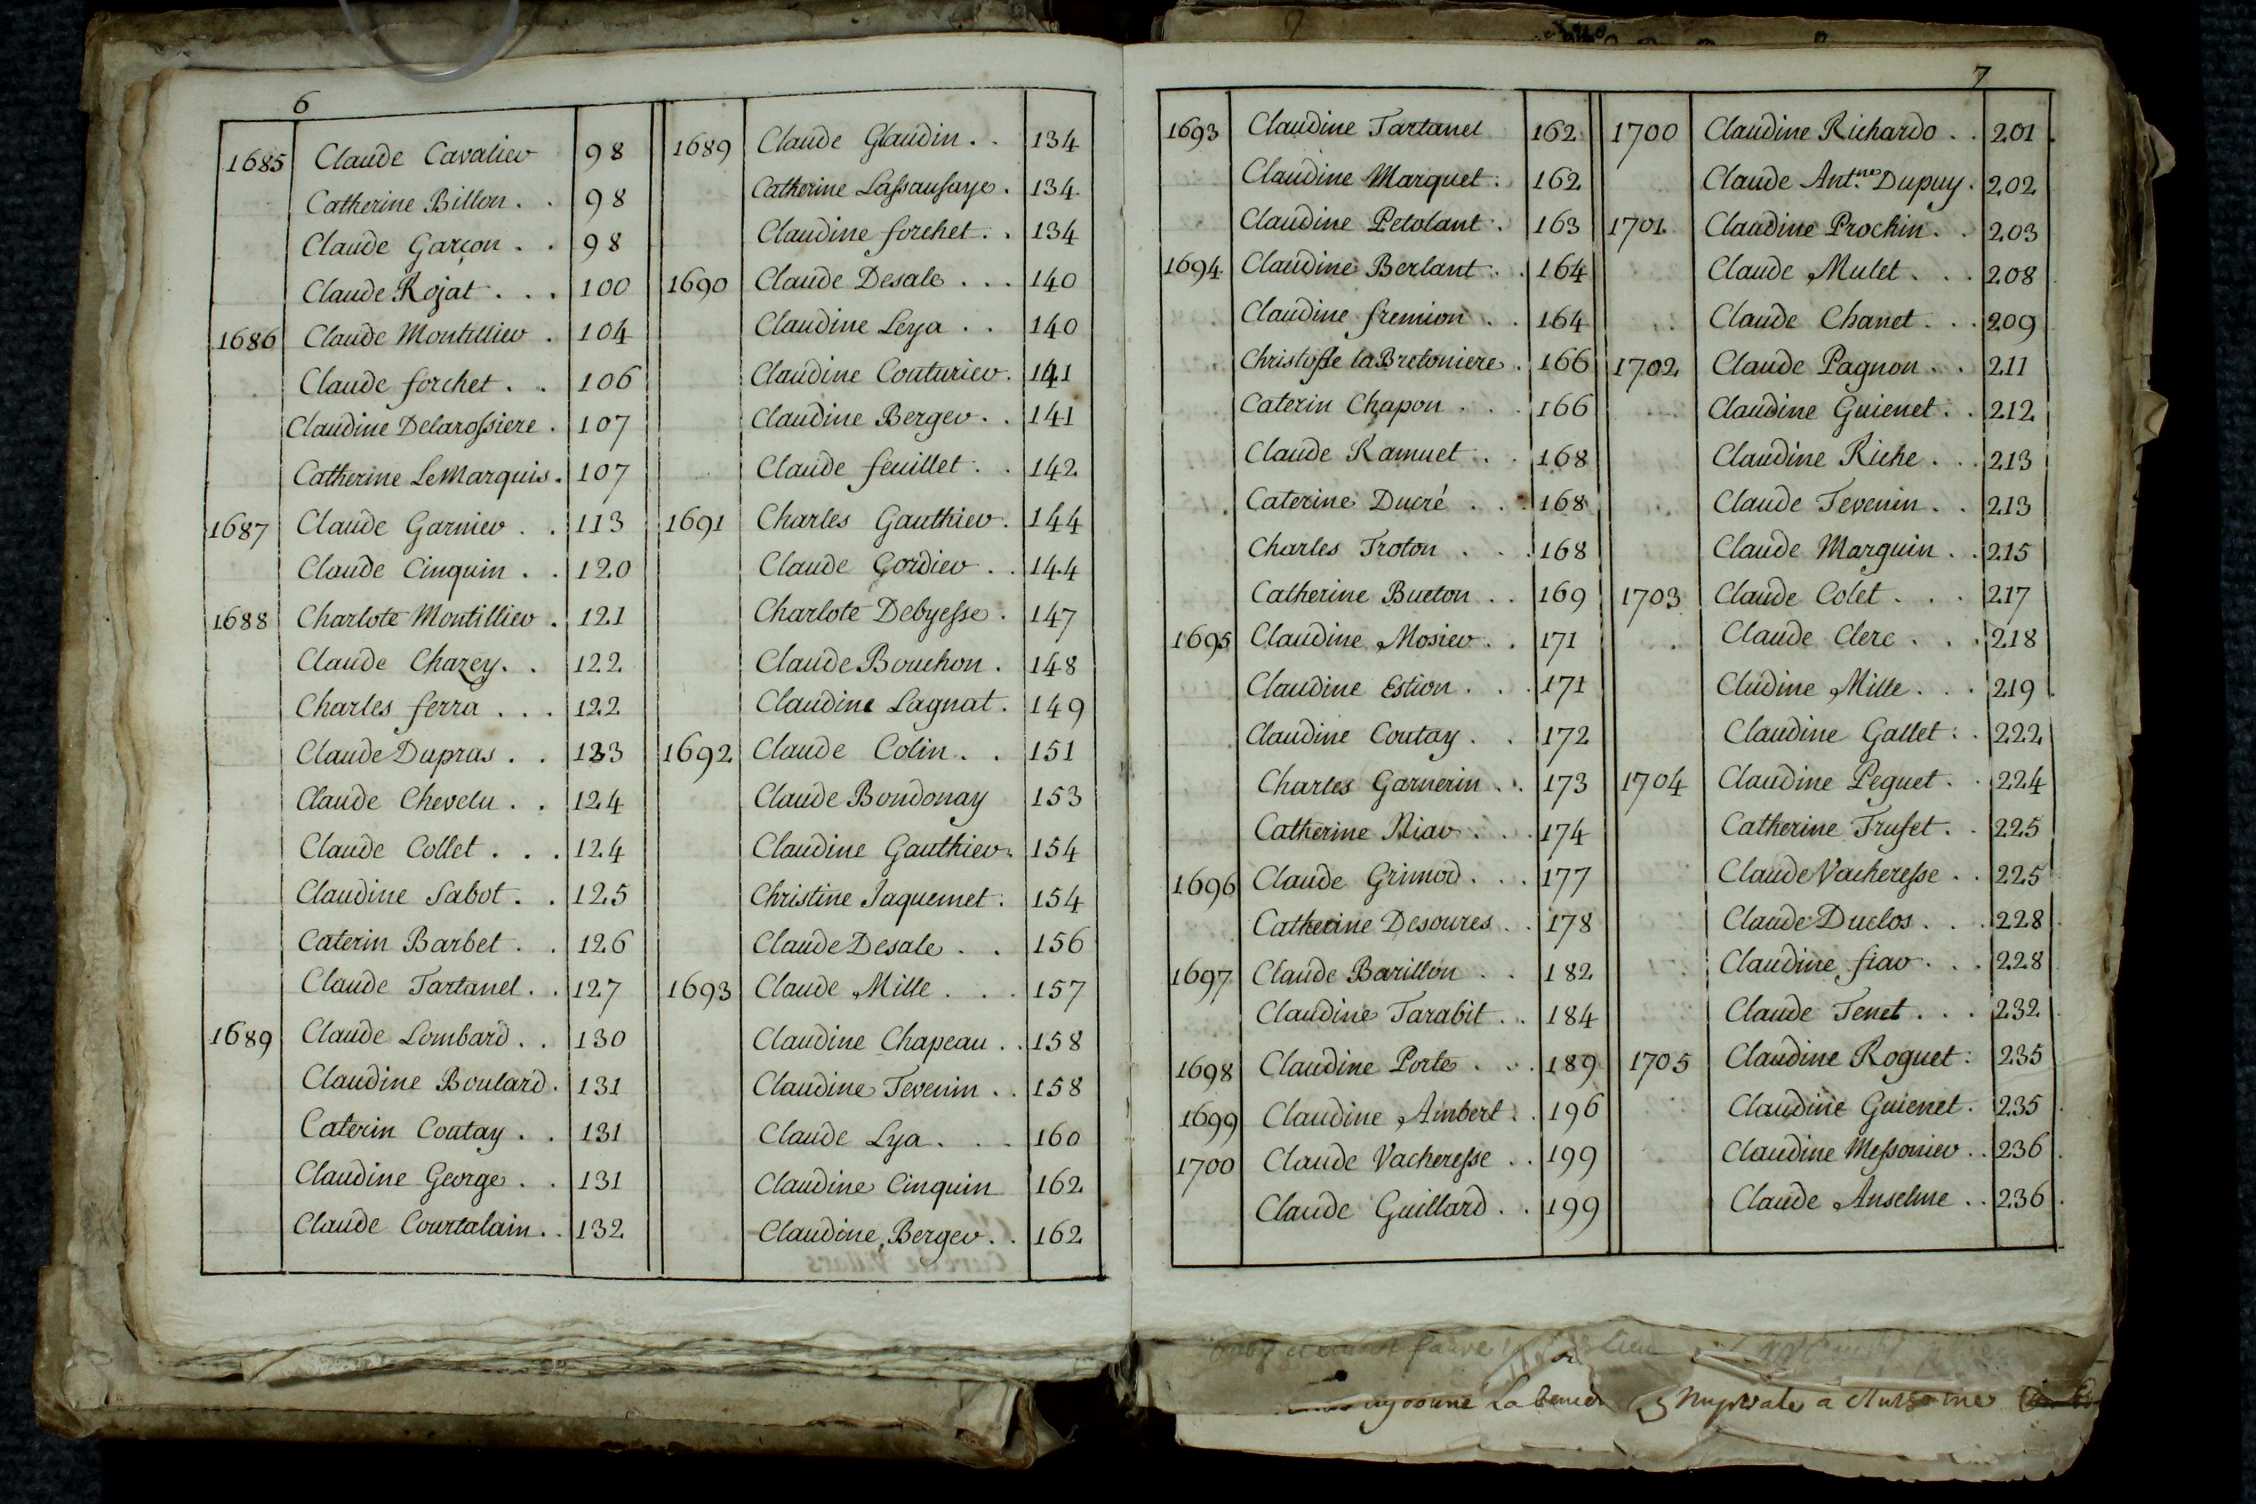 6
1685 Claude Cavalier 98
Catherine Billon . . 98
Claude Garçon . . 98
Claude Rojat . . . 100
1686 Claude Montillier . 104
Claude forchet . . 106
Claudine Delarossiere . 107
Catherine LeMarquis . 107
1687 Claude Garnier . . 113
Claude Cinquin . . 120
1688 Charlote Montillier . 121
Claude Chazey . . 122
Charles ferra . . . 122
Claude Dupras . . 123
Claude Chevelu . . 124
Claude Collet . . . 124
Claudine Sabot . . 125
Caterin Barbet . . 126
Claude Tartanel . . 127
1689 Claude Lombard . . 130
Claudine Boulard . 131
Caterin Coutay . . 131
Claudine George . . 131
Claude Courtalain . . 132
1689 Claude Glaudin . . 134
Catherine Lassausaye . 134
Claudine forchet . . 134
1690 Claude Desale . . . 140
Claudine Leya . . 140
Claudine Couturier . 141
Claudine Berger . . 141
Claude feuillet . . 142
1691 Charles Gauthier . 144
Claude Gordier . . 144
Charlote Debyesse . 147
Claude Bouchon . 148
Claudine Lagnat . 149
1692 Claude Colin . . 151
Claude Bondonay 153
Claudine Gauthier . 154
Christine Jaquemet . 154
Claude Desale . . 156
1693 Claude Mille . . . 157
Claudine Chapeau . . 158
Claudine Tevenin . . 158
Claude Lya . . . 160
Claudine Cinquin 162
Claudine Berger . . 162
7
1693 Claudine Tartanel 162
Claudine Marquet . 162
Claudine Petolant . 163
1694 Claudine Berlant . . 164
Claudine fremion . . 164
Christofle laBretoniere . 166
Caterin Chapon . . . 166
Claude Ramuet . . 168
Caterine Ducré . . . 168
Charles Troton . . . 168
Catherine Bueton . . 169
1695 Claudine Mosier . . 171
Claudine Estion . . . 171
Claudine Coutay . . 172
Charles Garnerin . . 173
Catherine Niar . . . 174
1696 Claude Grimod . . . 177
Catherine Desoures . . 178
1697 Claude Barillon . . 182
Claudine Tarabit . . 184
1698 Claudine Porte . . . 189
1699 Claudine Ambert . . 196
1700 Claude Vacheresse . . 199
Claude Guillard . . 199
1700 Claudine Richard . . 201
Claude Ant.ne Dupuy . 202
1701 Claudine Prochin . . 203
Claude Mulet . . . 208
Claude Chanet . . . 209
1702 Claude Pagnon . . 211
Claudine Guienet . . 212
Claudine Riche . . . 213
Claude Tevenin . . 213
Claude Marguin . . 215
1703 Claude Colet . . . 217
Claude Clerc . . . 218
Cludine Mille . . . 219
Claudine Gallet . . 222
1704 Claudine Peguet . . 224
Catherine Trufet . . 225
Claude Vacheresse . . 225
Claude Duclos . . . 228
Claudine fiar . . . 228
Claude Tenet . . . 232
1705 Claudine Roguet . 235
Claudine Guienet . 235
Claudine Messonier . . 236
Claude Anselme . . 236